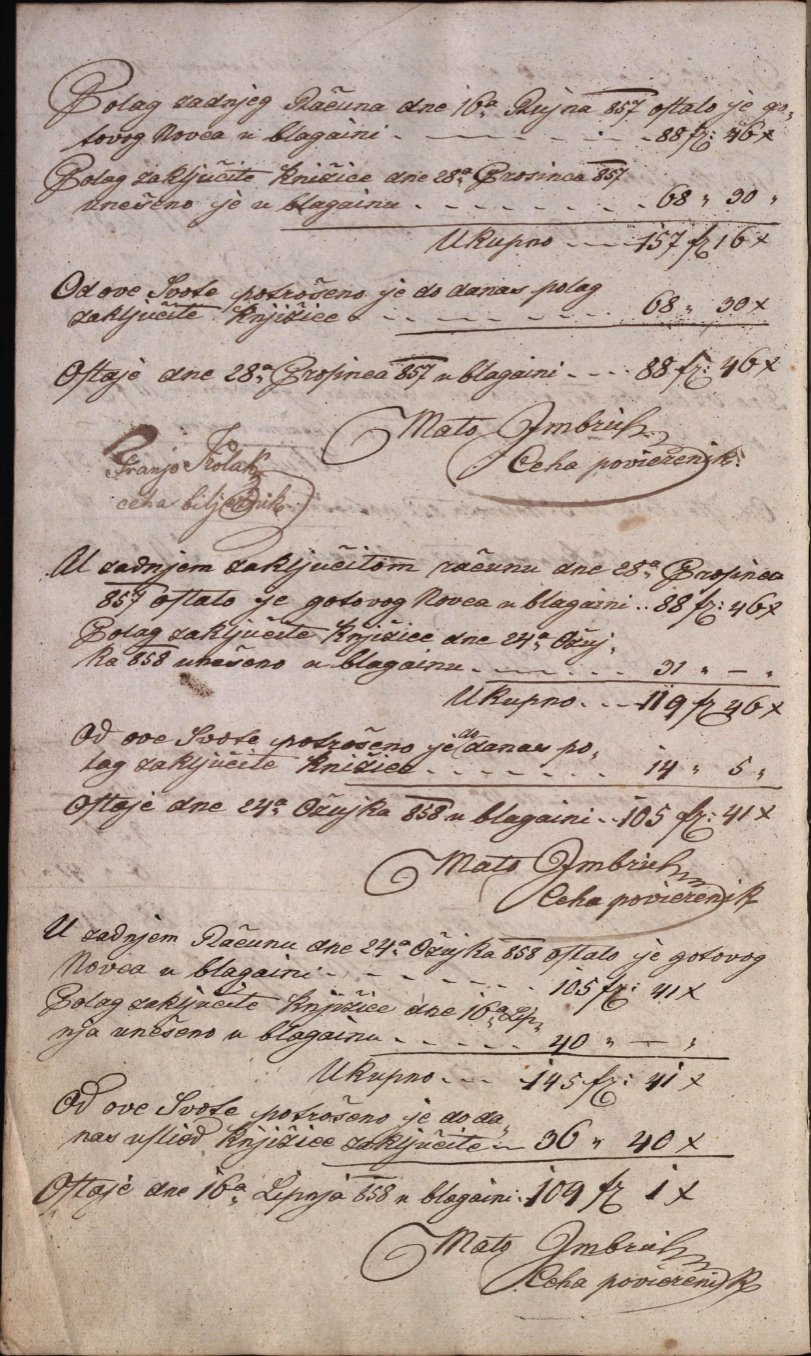 Polag zadnjeg Računa dne 16a Rujna 857 ostalo je go„
tovog Novca u blagaini - - - - 88 fr: 46 x
Polag zaključite Knižice dne 28a Prosinca 857
unešeno je u blagainu - - - - - - - 68 „ 30 „
Ukupno - - - 157 fr 16 x
Od ove Svote potrošeno je do danas polag
zaključite Knjižice - - - - - - - 68 „ 30 x
Ostaje dne 28a Prosinca 857 u blagaini - - - 88 fr: 46 x
Mato Imbrich
Ceha povierenik
Franjo
ceha bilježnik
U zadnjem zaključitom računu dne 28a Prosinca
857 ostalo je gotovog Novca u blagaini .. 88 fr: 46 x
Polag zaključite Knjižice dne 24a Ožuj„
ka 858 unešeno u blagainu - - - - 31 „ — „
Ukupno - - - 119 fr 46 x
Od ove Svote potrošeno je do danas po„
lag zaključite Knižice - - - - - - 14 „ 5 „
Ostaje dne 24a Ožujka 858 u blagaini - - 105 fr: 41 x
Mato Imbrich
Ceha povierenik
U zadnjem Računu dne 24a Ožujka 858 ostalo je gotovog
Novca u blagaini - - - - - - - 105 fr: 41 x
Polag zaključite Knjižice dne 16a Lip„
nja unešeno u blagainu - - - - - 40 „ — „
Ukupno - - - 145 fr: 41 x
Od ove Svote potrošeno je do da„
nas uslied Knjižice zaključite - 36 „ 40 x
Ostaje dne 16a Lipnja 858 u blagaini - 109 fr 1 x
Mato Imbrich
Ceha povierenik